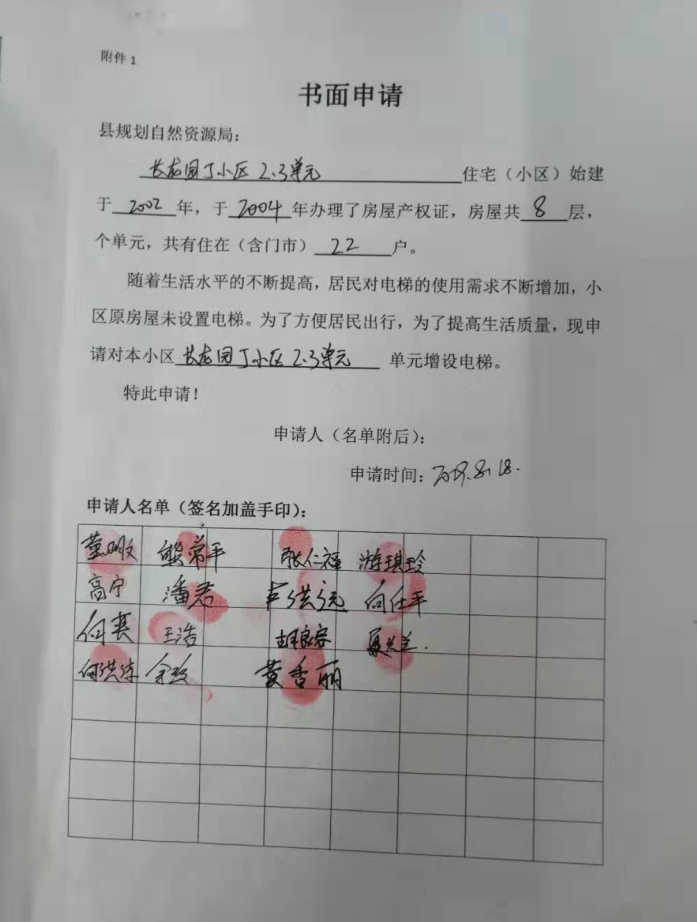 附件 1
书面申请
县规划自然资源局：
长龙园丁小区 2.3单元 住宅（小区）始建
于 2002 年，于 2004 年办理了房屋产权证，房屋共 8 层，
个单元，共有住在（含门市） 22 户。
随着生活水平的不断提高，居民对电梯的使用需求不断增加，小
区原房屋未设置电梯。为了方便居民出行，为了提高生活质量，现申
请对本小区 长龙园丁小区 2.3单元 单元增设电梯。
特此申请！
申请人（名单附后）：
申请时间：2019.8.18.
申请人名单（签名加盖手印）：
熊常平 张仁福
高宁 潘君 卢洪元 向仕平
何奕 王浩
黄香丽